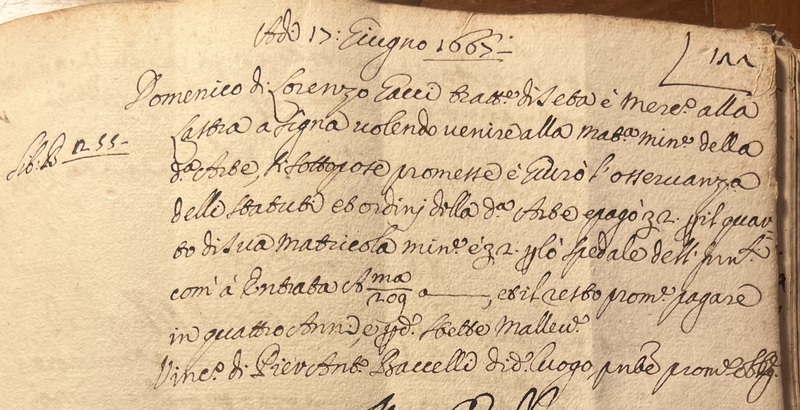 Adì 17: Giugno 1665:
111
Domenico di Lorenzo Cacci tratt.e di Seta è Merc.o alla
Lib: B 1255
Lastra a Signa volendo venire alla mat.a min.e della
d.a Arte, si sottopose promesse è Giurò l'osservanza
delli statuti et ordinj della d.a Arte e pagò z 2. p il quar
to di sua matricola min.e è z 2. p lo spedale dell'
com' à Entrata A ma/209 a ———, et il resto prom.e pagare
in quattro Anni, e p d.o stette Mallev.e
Vinc.o di Pier Ant.o Baccelli di d.o luogo, prom.e